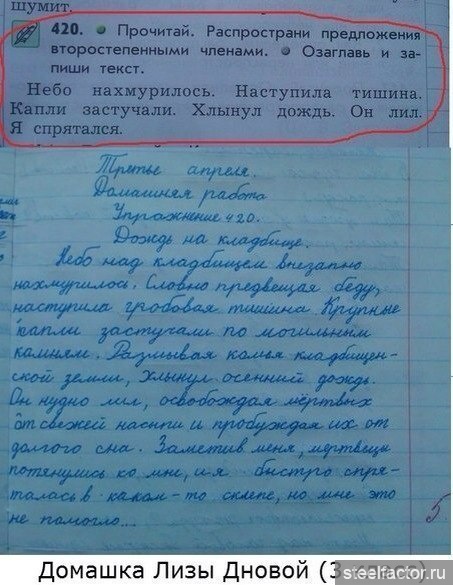 шумит.
420. • Прочитай. Распространи предложения
второстепенными членами. • Озаглавь и за-
пиши текст.
Небо нахмурилось. Наступила тишина.
Капли застучали. Хлынул дождь. Он лил.
Я спрятался.
Третье апреля.
Домашняя работа
Упражнение 420.
Дождь на кладбище.
Небо над кладбищем внезапно
нахмурилось. Словно предвещая беду,
наступила гробовая тишина. Крупные
капли застучали по могильным
камням. Размывая комья кладбищен-
ской земли, хлынул осенний дождь.
Он нудно лил, освобождая мёртвых
от свежей насыпи и пробуждая их от
долгого сна. Заметив меня, мертвецы
потянулись ко мне, и я быстро спря-
талась в каком-то склепе, но мне это
не помогло...
5
Домашка Лизы Дновой (3
steelfactor.ru